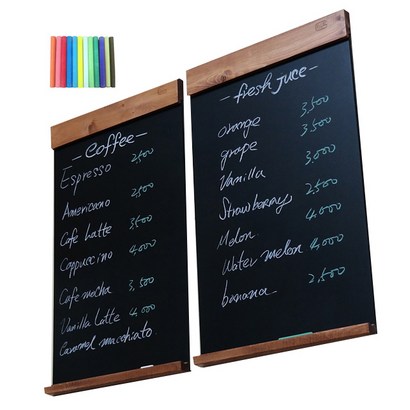 -coffee-
Espresso 2,500
Americano 2,500
Cafe Latte 3,500
Cappuccino 4,000
Cafe mocha 3,500
Vanilla Latte 4,000
Caramel macchiato
-fresh Juce-
orange 3,500
grape 3,500
Vanilla 3,000
Strawbarary 2,500
Melon 4,000
Water melon 4,000
banana 2,500